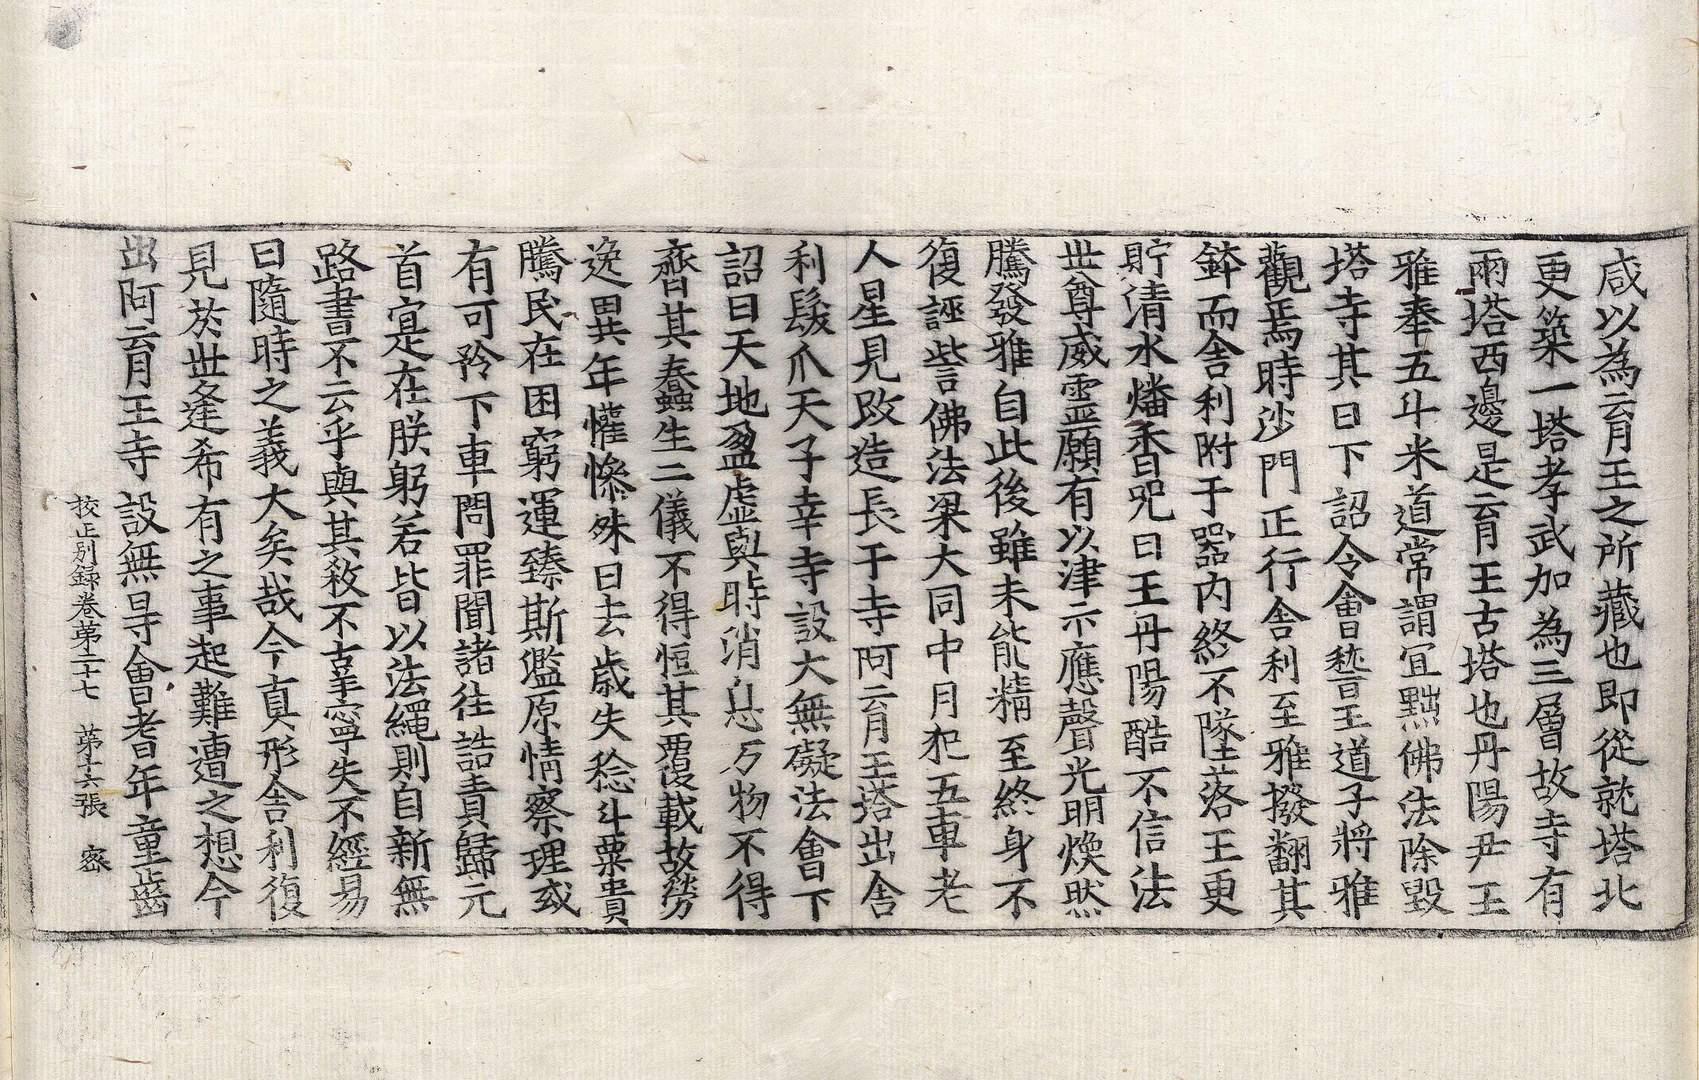 咸以為育王之所藏也即從就塔北
更築一塔孝武加為三層故寺有
兩塔西邊是育王古塔也丹陽尹王
雅奉五斗米道常謂冝黜佛法除毀
塔寺其日下詔令會嵇晉王道子將雅
觀焉時沙門正行舍利至雅撥翻其
鉢而舍利附于器内終不墜落王更
貯清水燔香呪曰王丹陽酷不信法
世尊威靈願有以津示應聲光明煥然
騰發雅自此後雖未能精至終身不
復誣訾佛法梁大同中月犯五車老
人星見改造長干寺阿育王塔出舍
利髮爪天子幸寺設大無礙法會下
詔曰天地盈虛與時消息万物不得
齊其蠢生二儀不得恒其覆載故勞
逸異年懽慘殊日去歲失稔斗粟貴
騰民在困窮運臻斯濫原情察理或
有可矜下車問罪聞諸往誥責歸元
首寔是在朕躬若皆以法繩則自新無
路書不云乎與其殺不辜寧失不經易
曰隨時之義大矣哉今真形舍利復
見於世逢希有之事起難遭之想今
出阿育王寺設無㝵會耆年童齒
校正別録卷苐二十七　苐十六張　宻